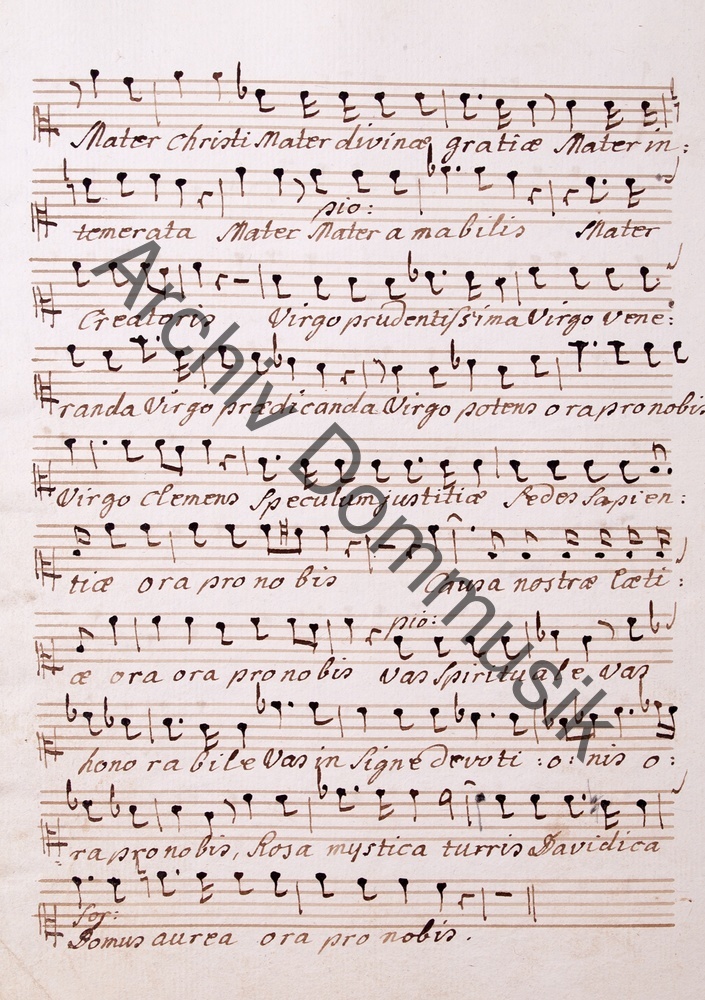 Mater Christi Mater divinæ gratiæ Mater in:
pio:
temerata Mater Mater amabilis Mater
Creatoris Virgo prudentissima Virgo vene:
randa Virgo prædicanda Virgo potens ora pro nobis
Virgo Clemens Speculum justitiæ Sedes Sapien:
tiæ ora pro nobis Causa nostræ læti:
pio:
æ ora ora pro nobis Vas Spirituale Vas
honorabile Vas in Signe devoti:o:nis o:
ra pro nobis, Rosa mystica turris Davidica
for:
Domus aurea ora pro nobis.
Archiv Dommusik